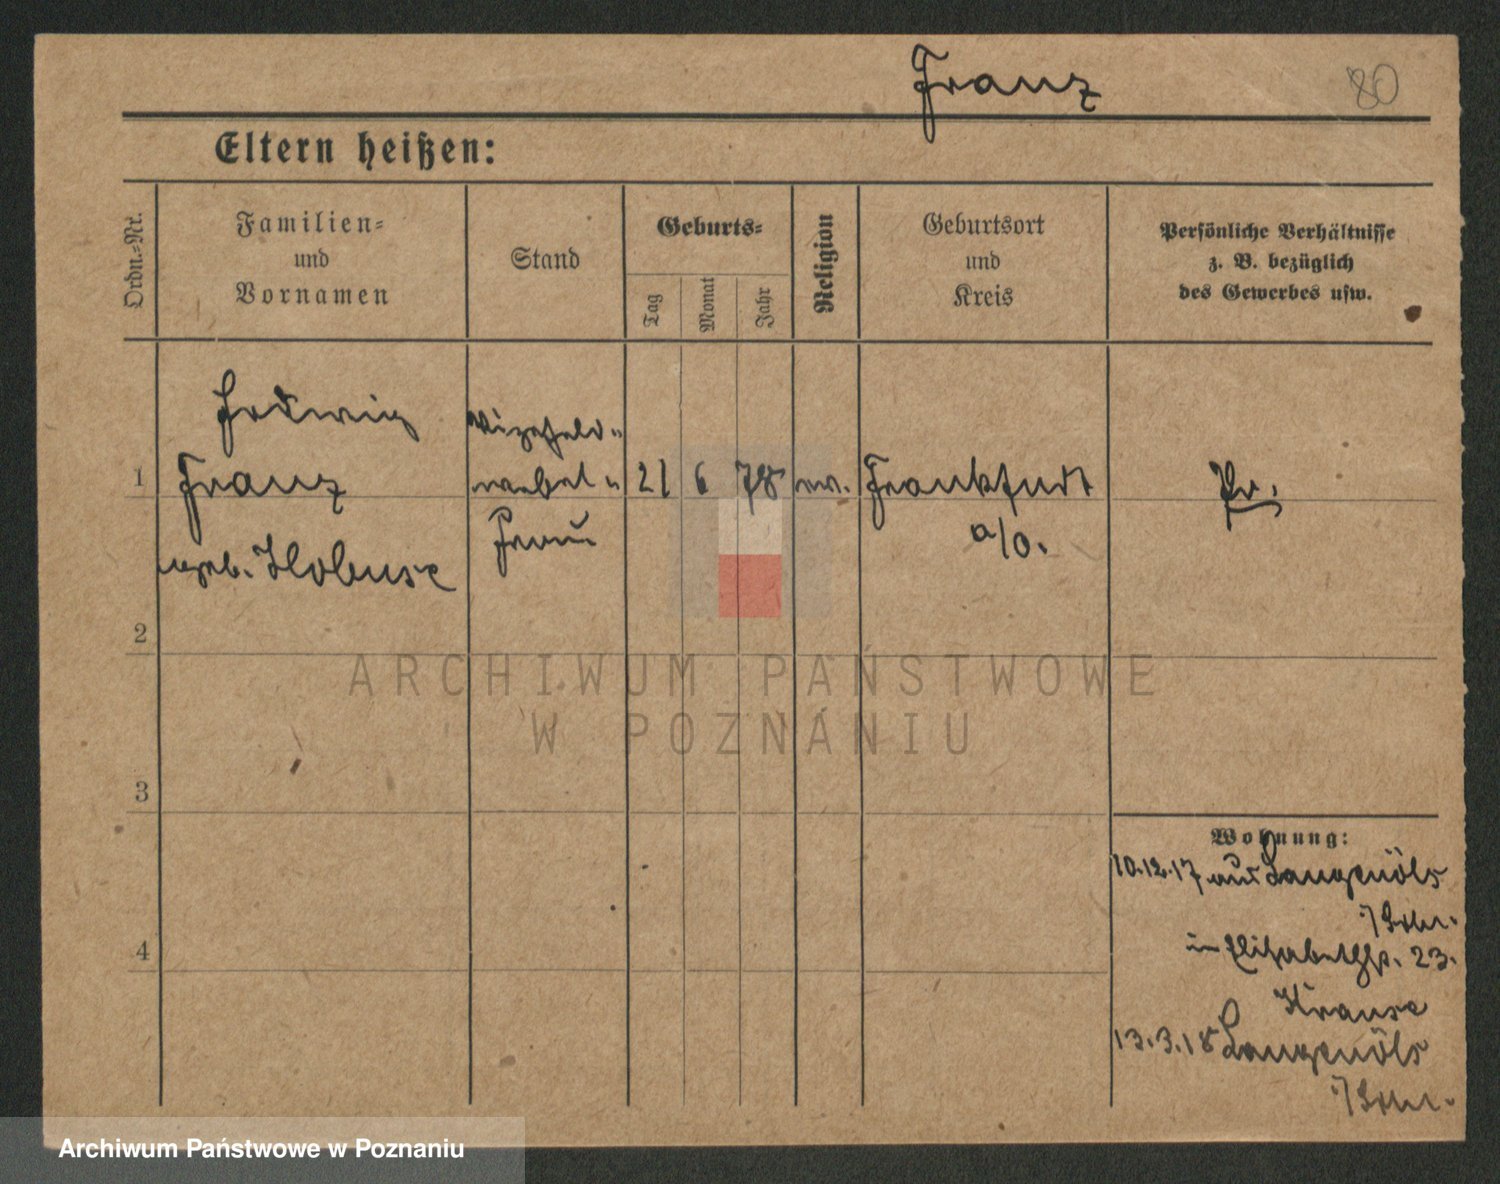 Franz
80
Eltern heißen:
Ordn.=Nr.
Familien=
und
Vornamen
Stand
Geburts=
Tag
Monat
Jahr
Religion
Geburtsort
und
Kreis
Persönliche Verhältnisse
z. B. bezüglich
des Gewerbes usw.
1
Hedwig
Franz
geb. Hobuse
Vizefeld"
webel"
Frau
21
6
78
ev.
Frankfurt
a/O.
Pr.
2
3
4
Wohnung:
10.12.17 aus Langenöls
in Elisabethstr. 23.
Krause
13.3.18 Langenöls
ARCHIWUM PAŃSTWOWE
W POZNANIU
Archiwum Państwowe w Poznaniu